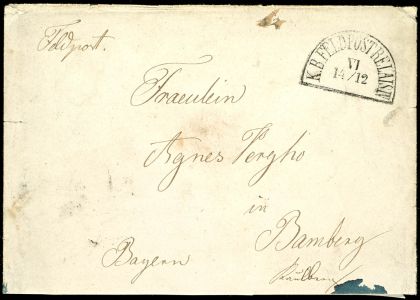 Feldpost.
K.B. FELDPOSTRELAIS
VI
14/12
Fraeulein
Agnes Pergho
in
Bamberg
Bayern